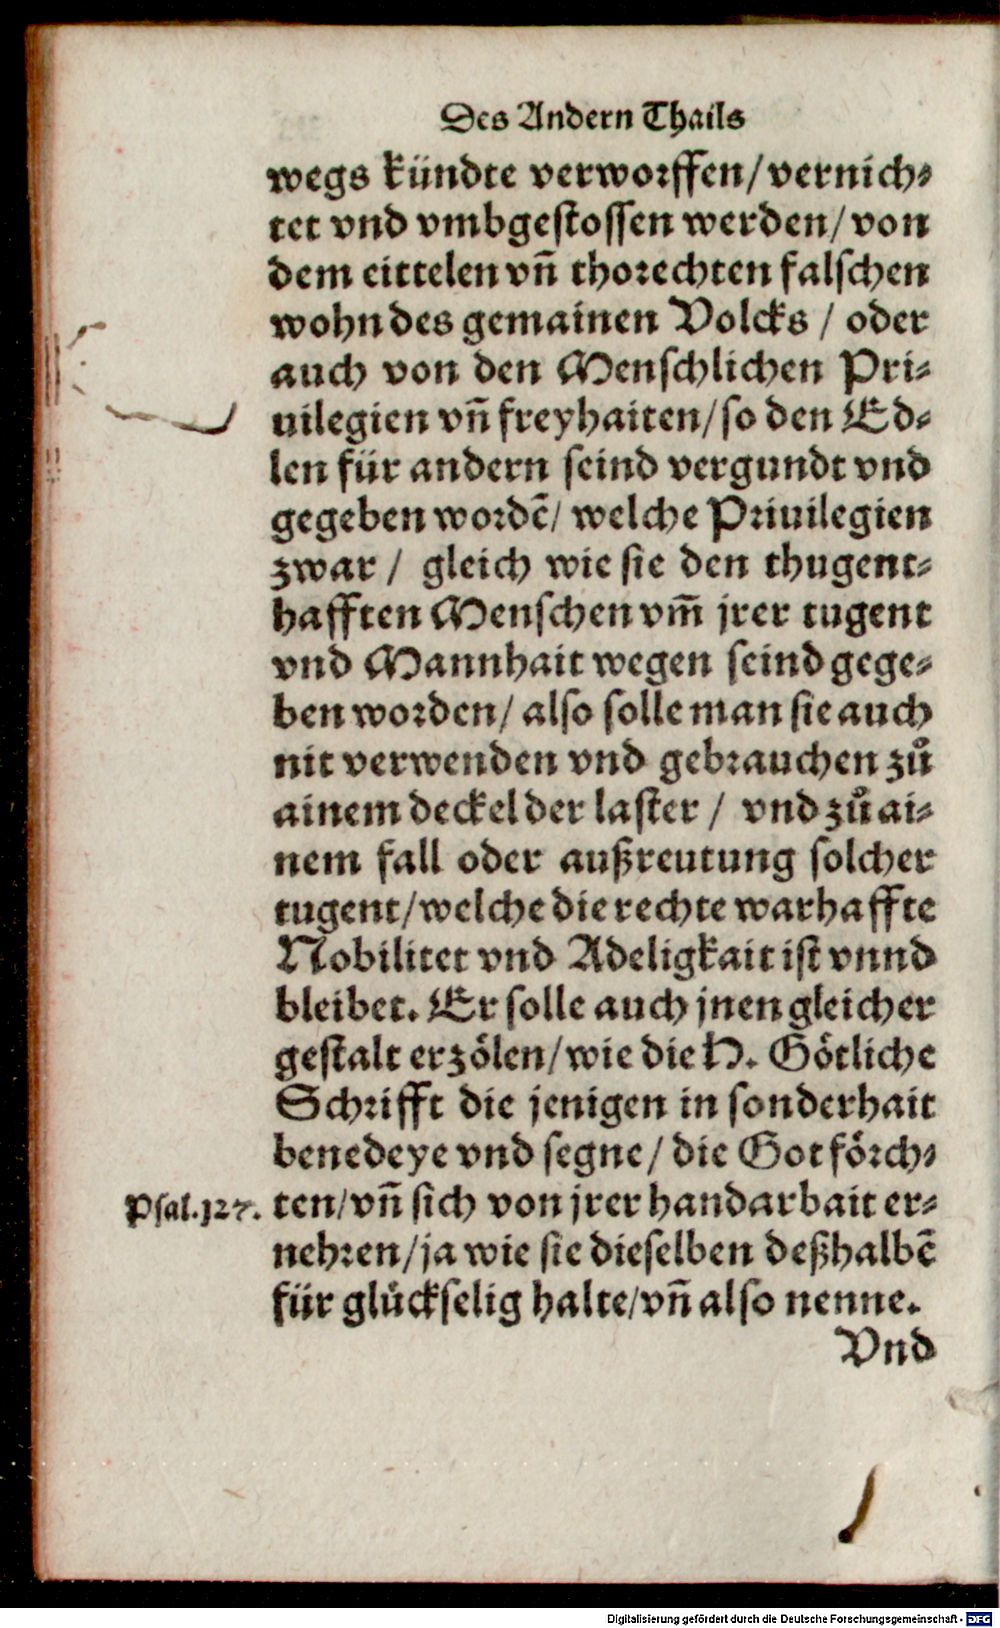 Des Andern Thails
wegs kündte verworffen/ vernich⸗
tet vnd vmbgestossen werden/ von
dem eittelen vñ thorechten falschen
wohn des gemainen Volcks / oder
auch von den Menschlichen Pri⸗
uilegien vñ freyhaiten/ so den Ed⸗
len für andern seind vergundt vnd
gegeben wordẽ/ welche Priuilegien
zwar / gleich wie sie den thugent⸗
hafften Menschen vm̃ jrer tugent
vnd Mannhait wegen seind gege⸗
ben worden/ also solle man sie auch
nit verwenden vnd gebrauchen zů
ainem deckel der laster / vnd zů ai⸗
nem fall oder außreutung solcher
tugent/ welche die rechte warhaffte
Nobilitet vnd Adeligkait ist vnnd
bleibet. Er solle auch jnen gleicher
gestalt erzölen/ wie die H. Götliche
Schrifft die jenigen in sonderhait
benedeye vnd segne/ die Got förch⸗
Psal.127. ten/ vñ sich von jrer handarbait er⸗
nehren/ ja wie sie dieselben deßhalbẽ
für glückselig halte/ vñ also nenne.
Vnd
Digitalisierung gefördert durch die Deutsche Forschungsgemeinschaft - DFG